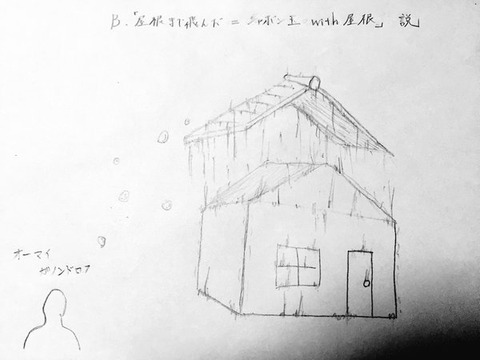 B.「屋根まで飛んだ = シャボン玉 with 屋根」 説
オーマイ